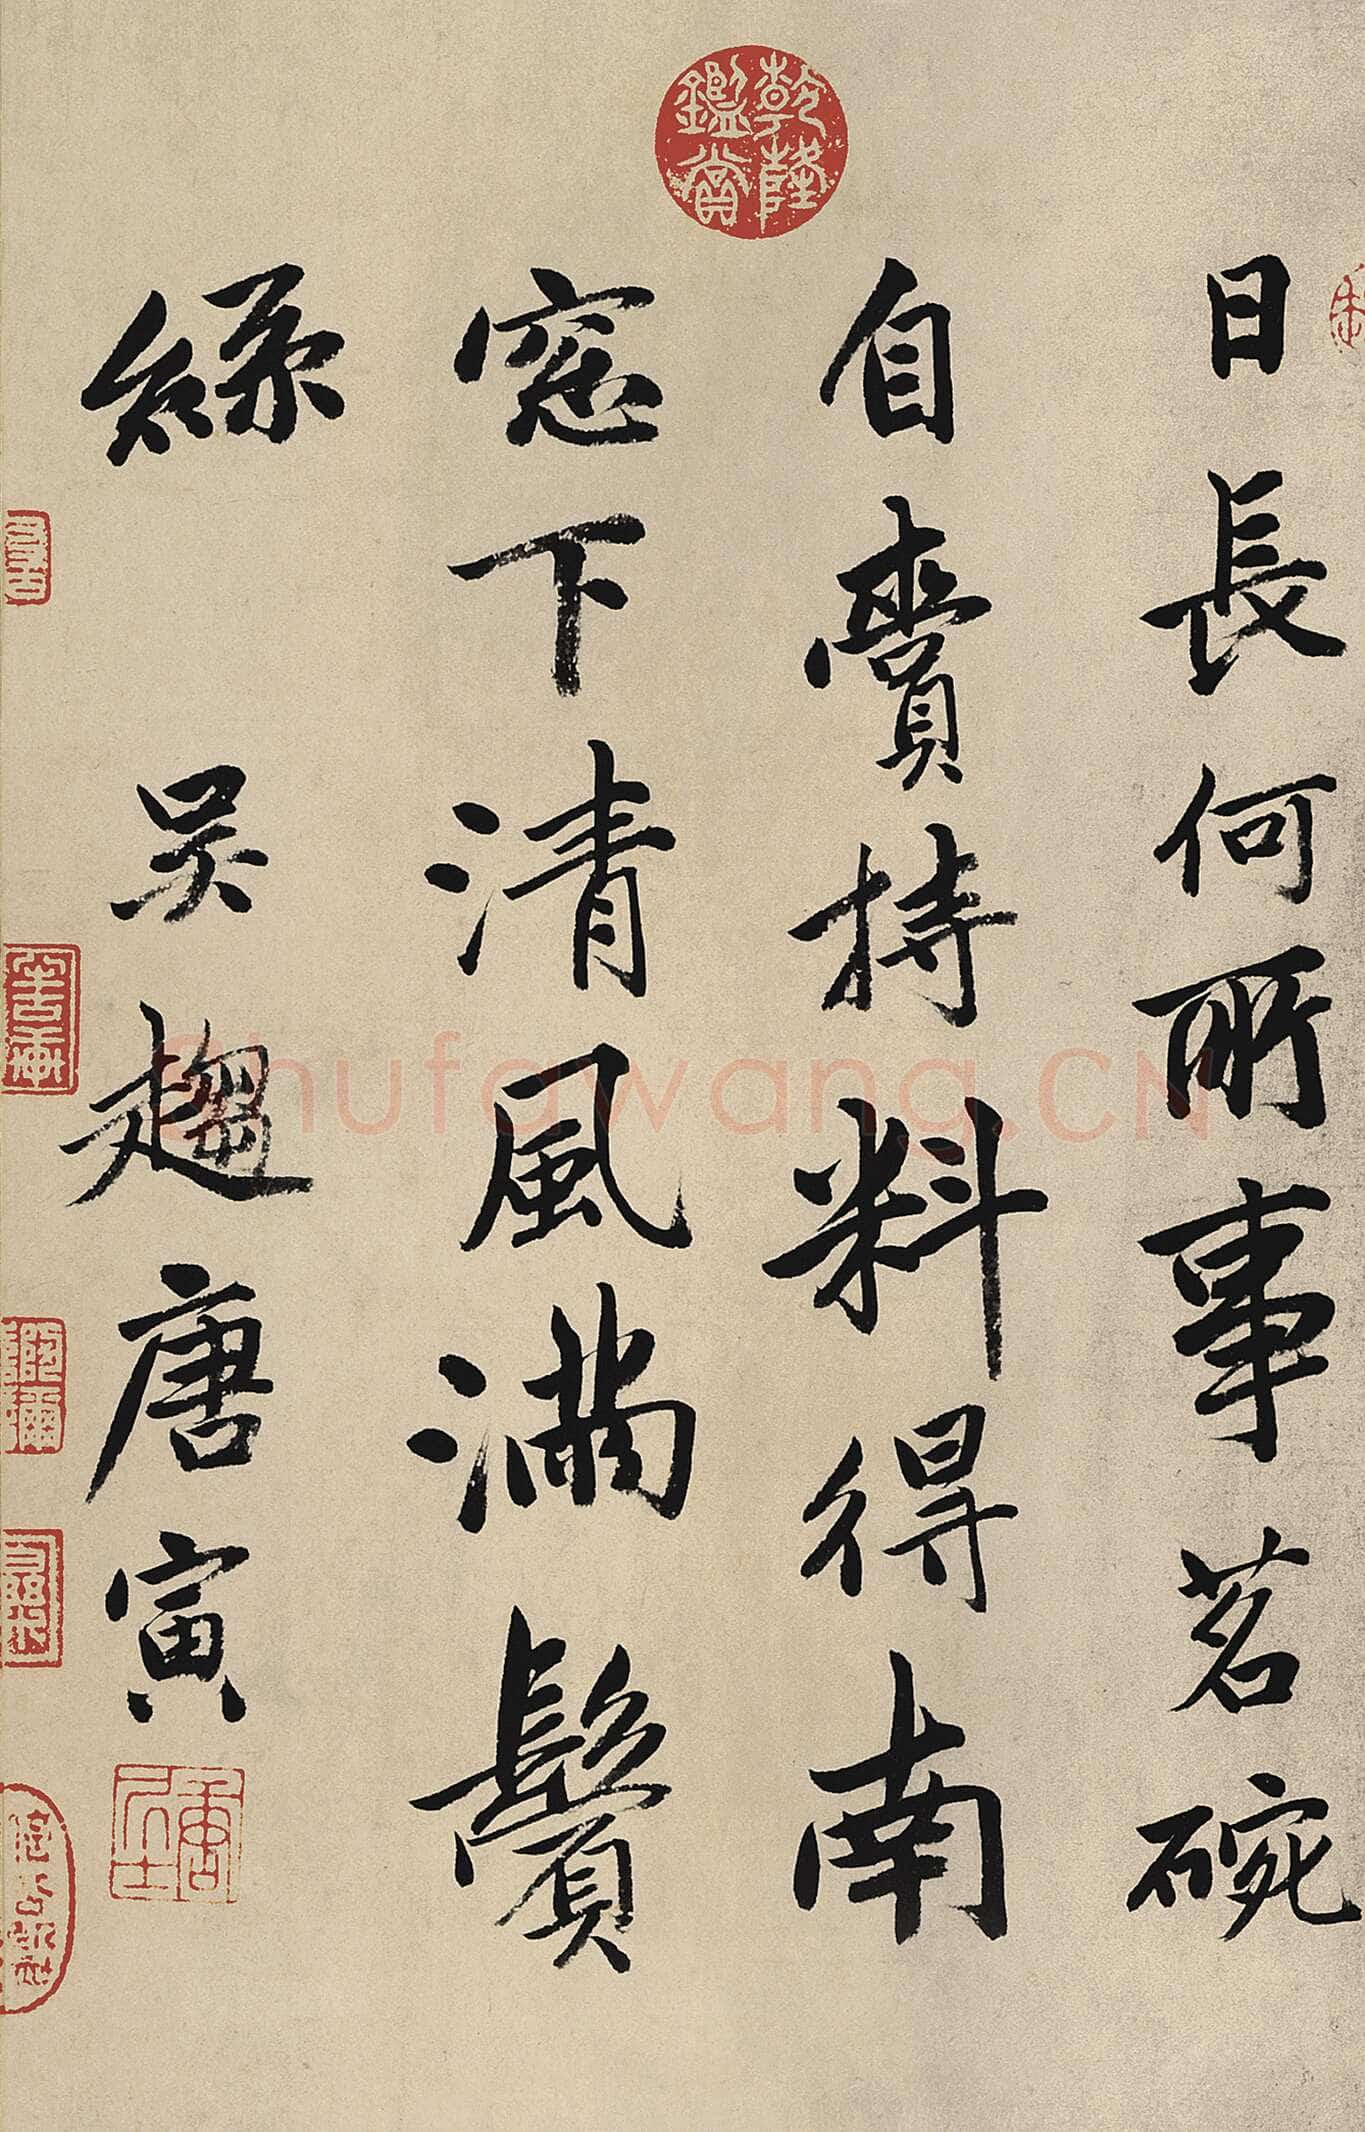 乾隆
鑑賞
日長何所事茗碗
自賷持料得南
窓下清風滿鬢
絲 吳趨唐寅
Shufawang.CN